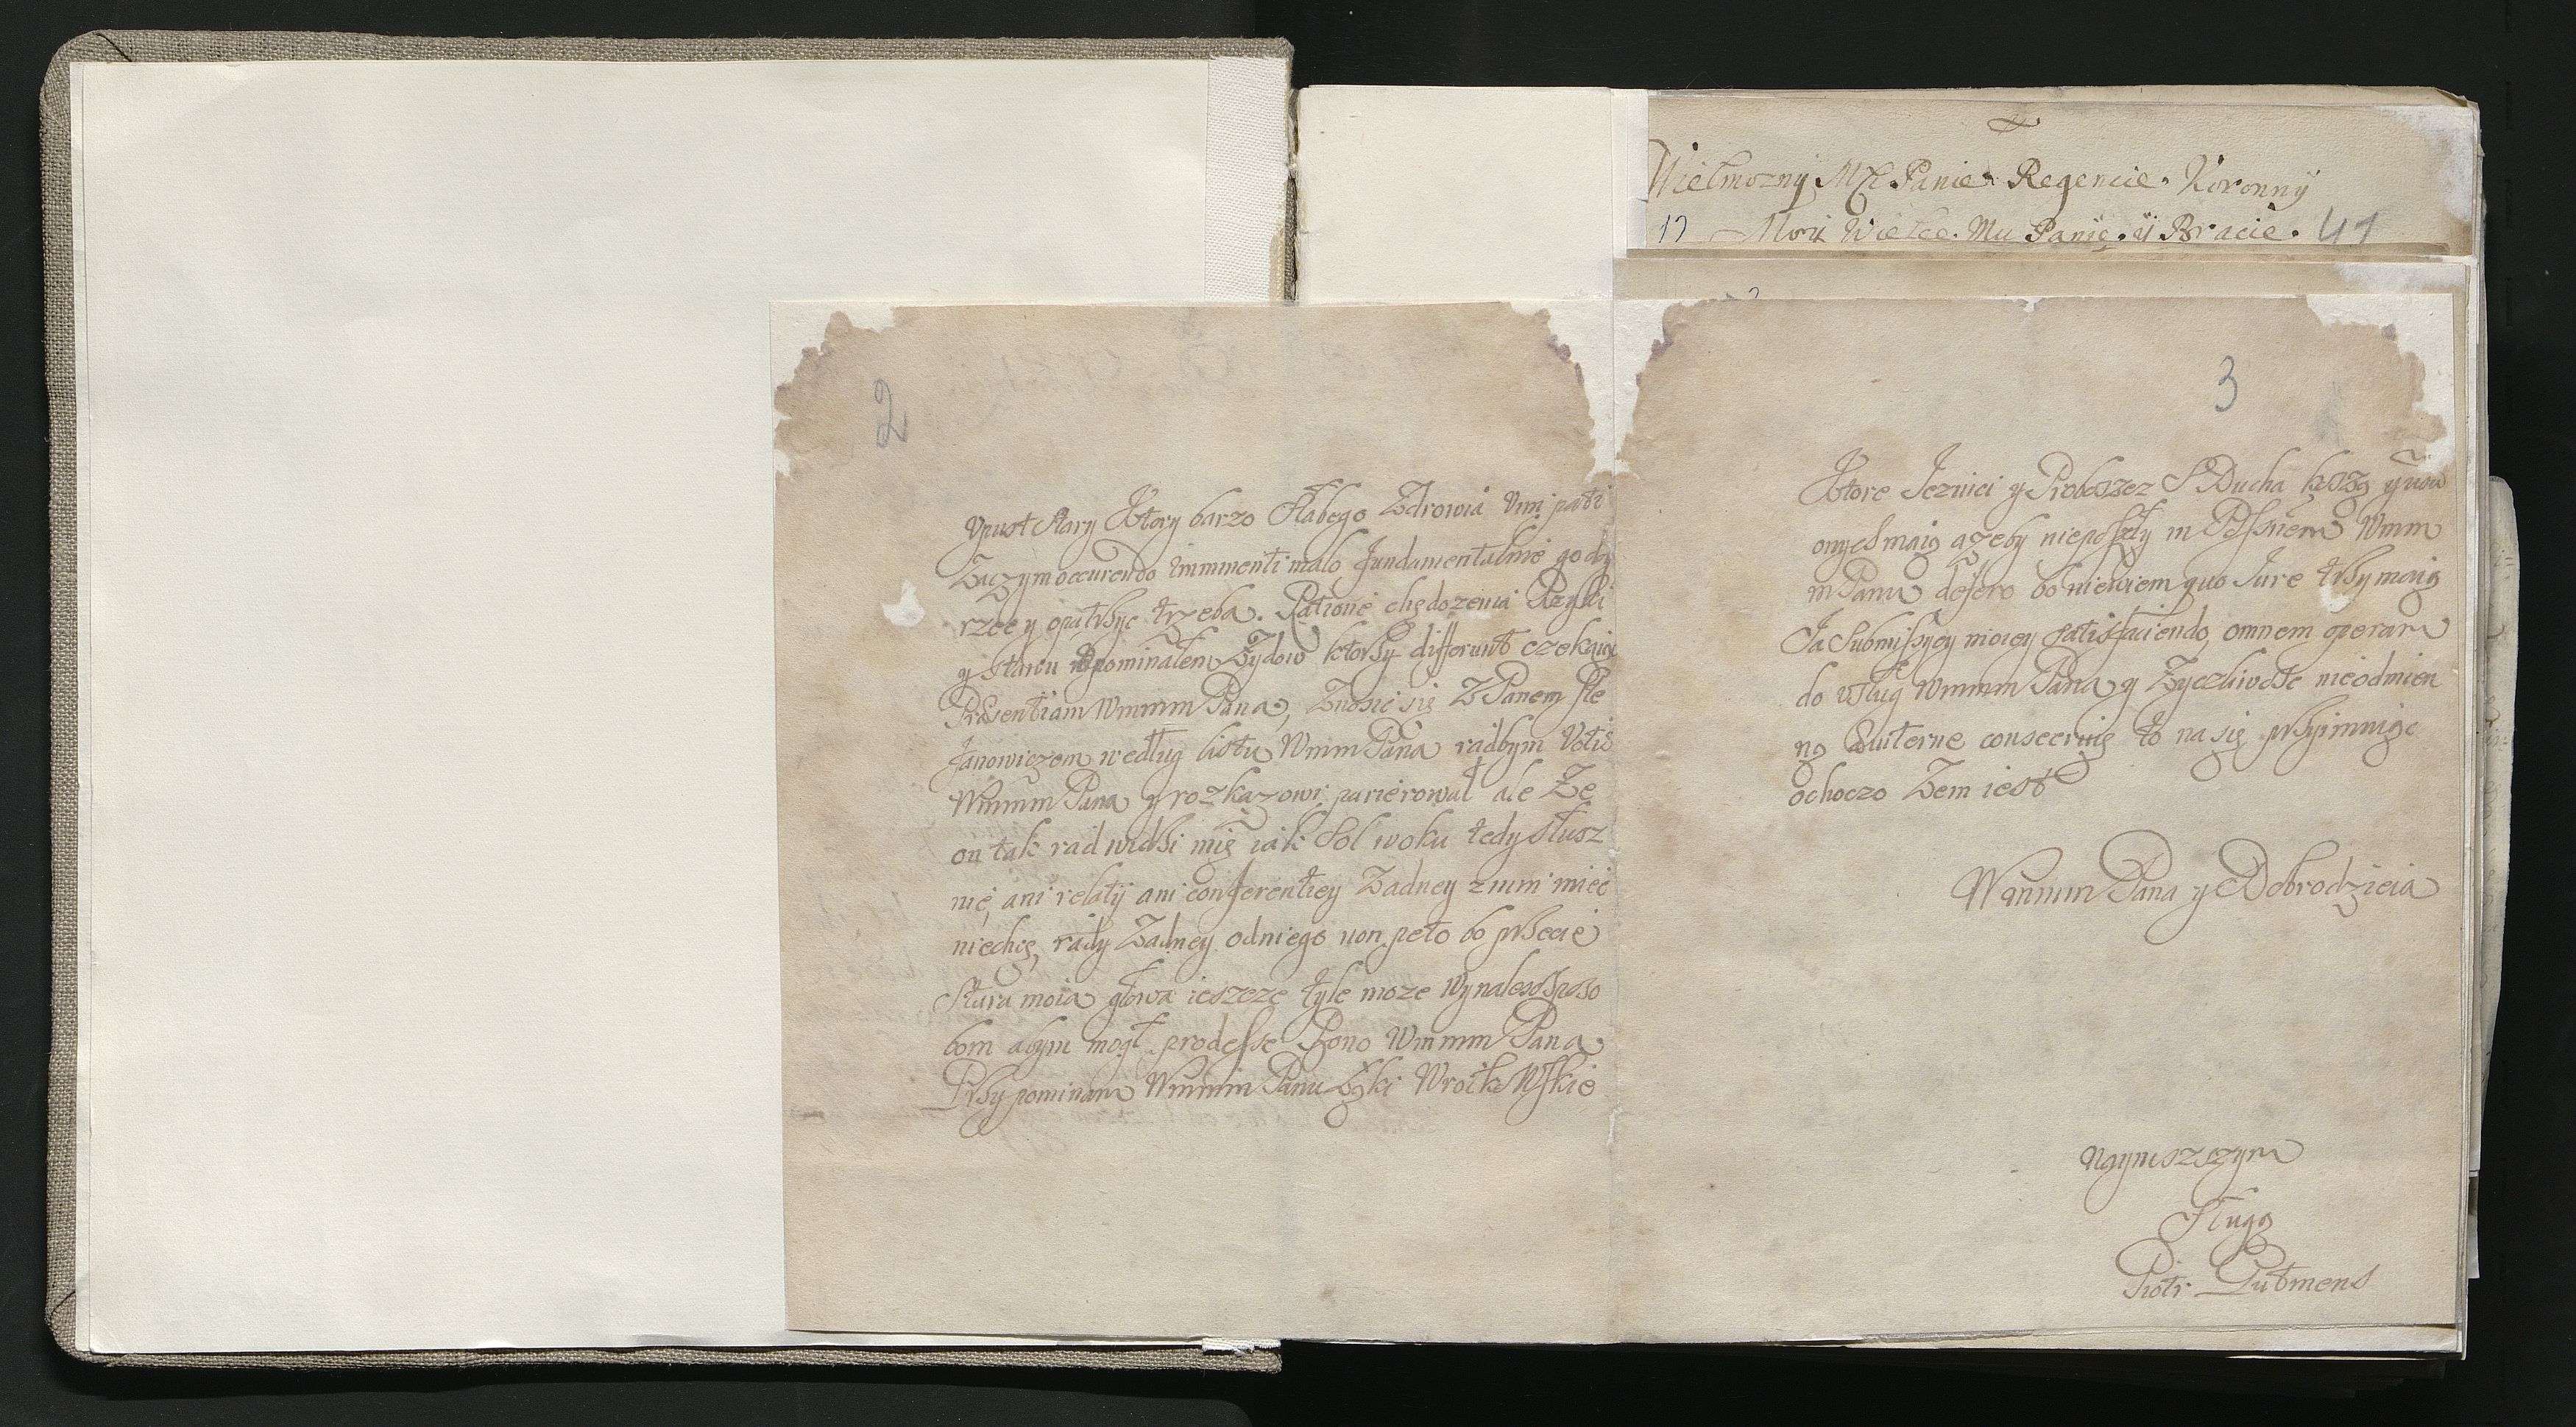 Wielmozny Mci Panie Regencie Koronny
17 Moy Wielce Mu Panie y Bracie 41
2
Upust stary Ktory barzo słabego Zdrowia Vim pati
Zaczym occurendo Imminenti malo fundamentalnie go do
rzee y opatrzyc trzeba. Ratione chędozenia Rzyki
y stawu wspominałem Zydow ktorzy differunt czekaiąc
Præsentiam Wmmm Pana, Znosic się Z Panem Ste
Janowiczem według listu Wmm Pana radbym Votis
Wmmm Pana y rozkazowi parierował ale Ze
on tak rad widzi mię iak Sol w oku tedy słusz
nie, ani relatij ani conferentiey Zadney znim miec
niechcę, rady Zadney odniego non peto bo przecie
Stara moia głowa ieszcze tyle moze wynalesc sposo
bom abym mogł prodesse Bono Wmmm Pana
Przypominam Wmmm Panu Łąki
3
Ktore Iezuici y Proboszcz S Ducha koszą
onych maią azeby nieposzły in Wmm
m Panu defero bo niewiem quo Iure trzymaią
Ia Submissyey moiey satisfaciendo, omnem operam
do usług Wmmm Pana y Zyczliwosc nieodmien
ną consecruię to na się przyimuiąc
ochoczo Zem iest
Wmmm Pana y Dobrodzieia
Nayniszszym
Sługą
Piotr Putmens